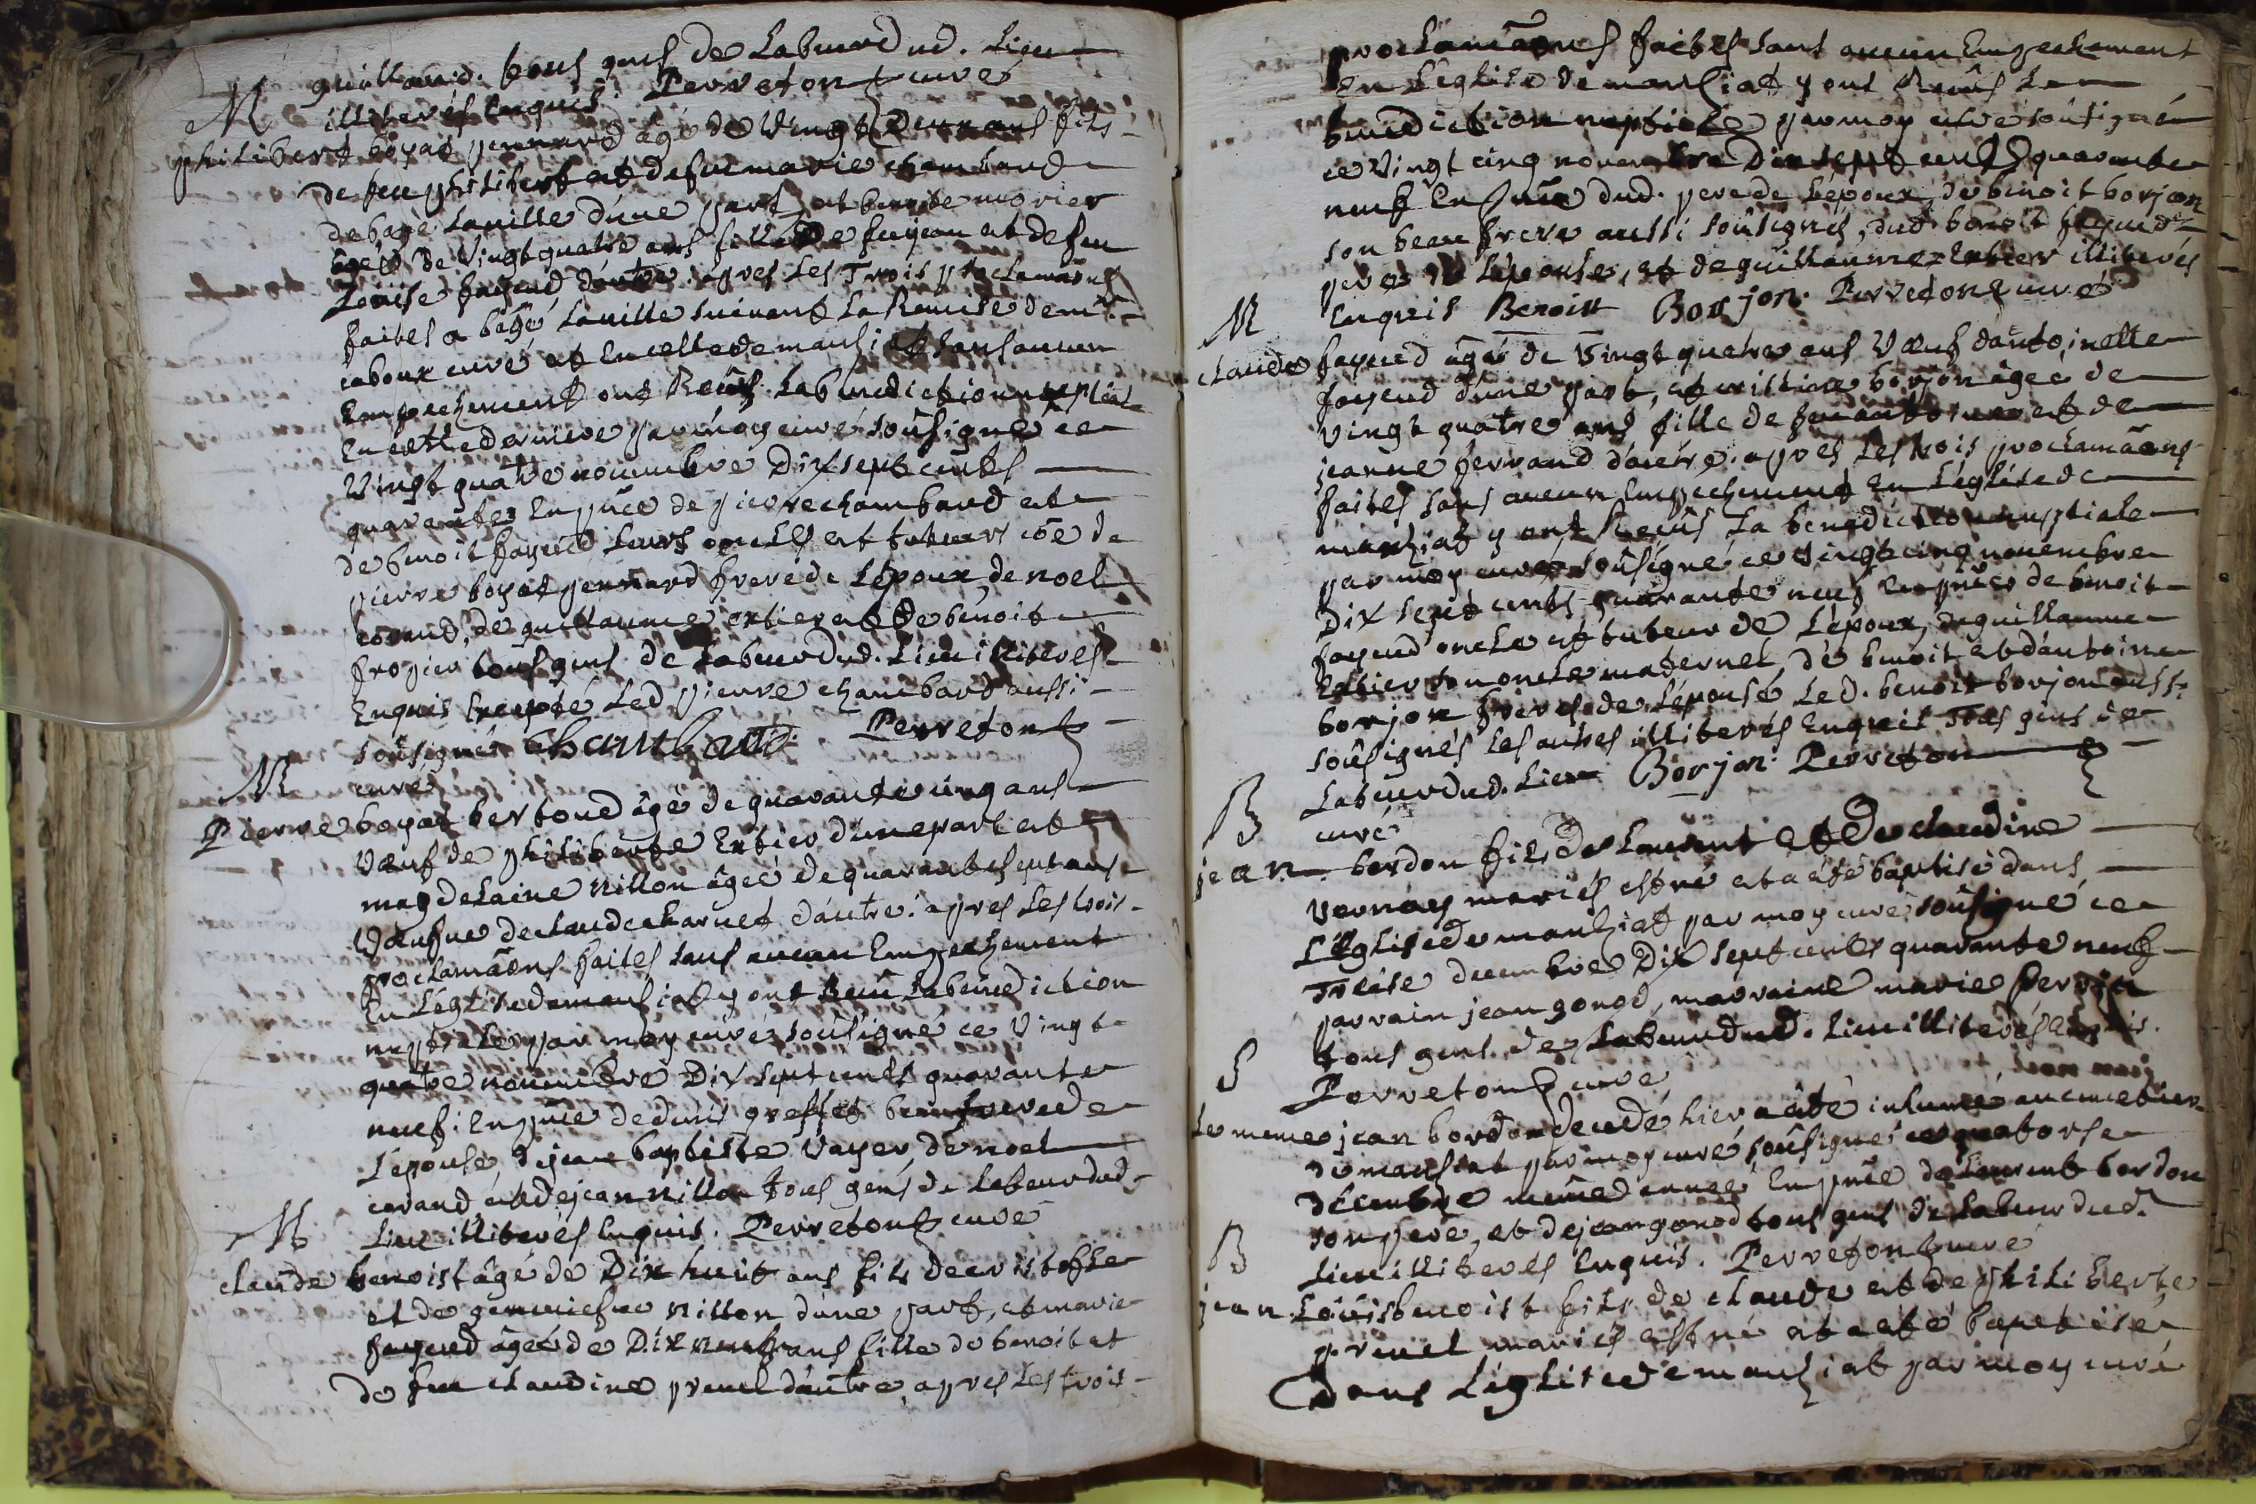 guillaud. tous gens de Labeurdud. Lieu
illiterés Enquis. Perreton curé
M
philibert boyat pennard âgé de Vingt Deux ans fils
de feu philibert et defue marie chambard
debagé Laville d'une part, et benoite morier
âgée de Vingt quatre ans fille De feu jean et defeu
Louise fayend d'autre. apres Les Trois proclamaôns
faites a bâgé Laville suivant La Remise de mr.
caboux curé et En celle de manziat sans aucun
Empechement ont Reçus La benediction nuptiale
En cette derniere par moy curé soûsigné ce
Vingt quatre novembre Dix sept cents
quarente En pnce de pierre chambard et
de benoit fayend Leurs oncles et tuteurs côe de
pierre boyat pennard frere de L'époux, de noel
corand, de guillaume extier et de benoit
fropier tous gens de Labeurdud. Lieu illiterés
Enquis Excepté Led pierre chambard aussi
soûsigné Chambard Perreton
curé
M
Pierre boyat bertoud âgé de quarante cinq ans
Vœuf de philiberte Extier d'une part et
magdelaine Nillon âgée de quarante sept ans
Vœufve de claude charnet d'autre. apres Les trois
proclamâôns faites sans aucun Empechement
En L'église de manziat y ont Reçu La benediction
nuptiale par moy curé soûsigné ce Vingt
quatre novembre Dix sept cents quarante
neuf. En pnce de denis greffet beaufrere de
L'epouse, de jean baptiste Vayer, de noel
corand, et de jean nillon tous gens de Labeurdud.
Lieu illiterés Enquis. Perreton curé
M
claude benoist âgé de Dix huit ans fils de cristofle
et de genevieſve Nillon d'une part, et marie
fayend âgée de Dix neuf ans fille de benoit et
de feu claudine prevel d'autre, apres Les trois
proclamâônes faites sans aucun Empechement
En L'église de manziat y ont Reçus La
benediction nuptiale par moy curé soûsigné
ce Vingt cinq novembre Dix sept cents quarante
neuf En pnce dud. pere de L'époux, de benoit borjon
son beau frere aussi soûsignés, dud. benoit fayend
pere de L'épouse, et de guillaume Extier illiterés
Enquis Benoist Borjon. Perreton curé
M
claude fayend âgé de Vingt quatre ans Vœuf d'antoinette
fayend d'une part, et borjon âgée de
Vingt quatre ans fille de feu antoine et de
jeanne ferrand d'autre. apres Les trois proclamâôns
faites sans aucun Empechement En L'église de
manziat y ont Reçus La benediction nuptiale
par moy curé soûsigné ce Vingt cinq novembre
Dix sept cents quarante neuf En pnce de benoit
fayend oncle et tuteur de L'époux, de guillaume
Extier son oncle maternel, de benoit et d'antoine
borjon freres de L'épouse Led. benoit borjon aussi
soûsignés Les autres illiterés Enquis Tous gens de
Labeurdud. Lieu Borjon. Perreton
curé
B
jean bordon fils De Laurent et De claudine
Vernay mariés est né et a été baptisé dans
L'Eglise de manziat par moy curé soûsigné ce
Treise decembre Dix sept cents quarante neuf
parrain jean gonod, marraine marie perrin
tous gens de Labeurdud. Lieu illiterés Enquis.
Perreton curé
S
Le meme jean bordon decedé hier a été inhumé au cimetier
de manziat par moy curé soûsigné ce quatorse
décembre même année En pnce de Laurent bordon
son pere, et de jean gonod tous gens de Labeurdud.
Lieu illiterés Enquis. Perreton curé
B
jean Loüis benoist fils de claude et de philiberte
prevel mariés est né et a été baptisé
Dans L'église de manziat par moy curé